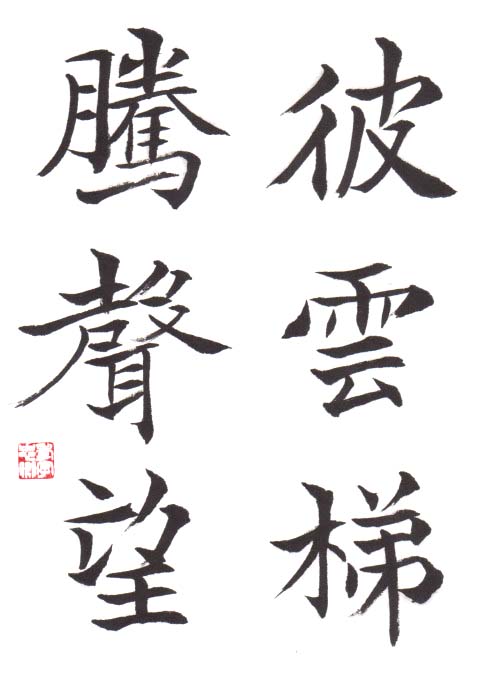 彼雲梯
騰聲望